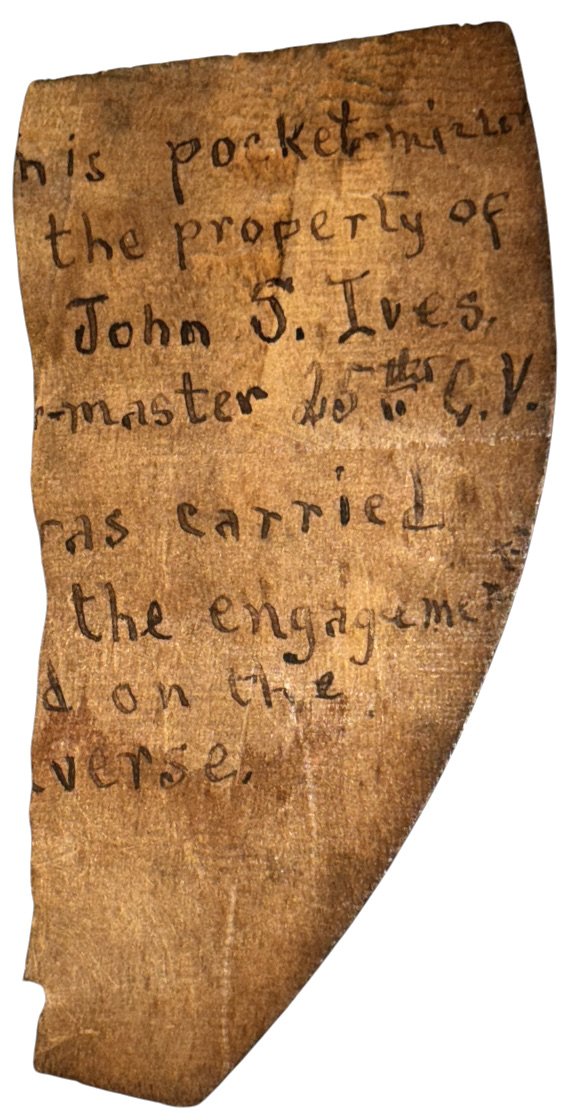 his pocket-mirro
the property of
John S. Ives.
r-master 25th C.V.
as carried
the engagemen
d on the
verse.